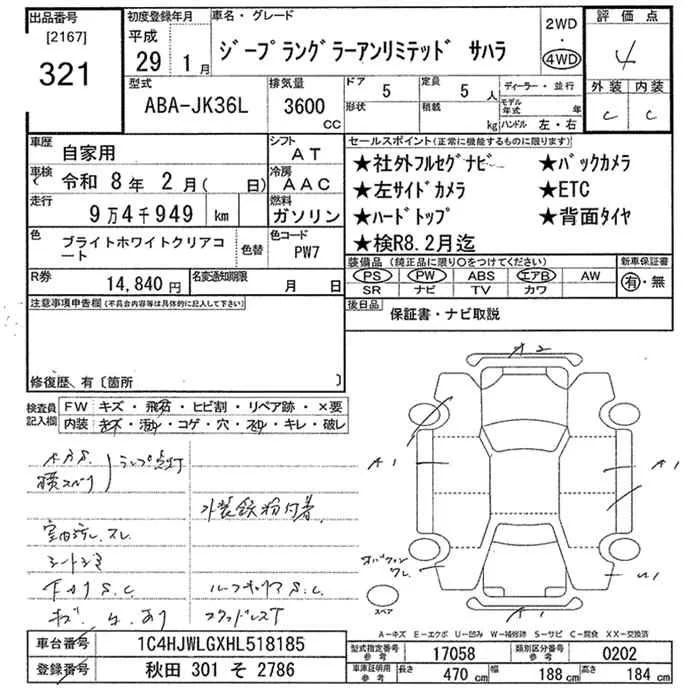 出品番号
[2167]
321
初度登録年月
平成
29 1月
車名・グレード
ジープラングラーアンリミテッド サハラ
2WD
・
4WD
評価点
4
外装 内装
C C
型式
ABA-JK36L
排気量
3600
CC
ドア 5
形状
定員 5人
積載 kg
ディーラー・並行
モデル年式 年
ハンドル 左・右
車歴
自家用
シフト
AT
車検
令和 8年 2月( 日)
冷房
AAC
走行
9万4千949 km
燃料
ガソリン
色
ブライトホワイトクリアコート
色替
色コード
PW7
R券
14,840円
名変通知期限
月 日
セールスポイント(正常に機能するものに限ります)
★社外フルセグナビ ★バックカメラ
★左サイドカメラ ★ETC
★ハードトップ ★背面タイヤ
★検R8.2月迄
装備品(純正品に限り○をつけてください)
PS PW ABS エアB AW
SR ナビ TV カワ
新車保証書
有・無
後日品
保証書・ナビ取説
注意事項申告欄(不具合内容等は具体的に記入して下さい)
修復歴、有〔箇所 〕
検査員記入欄
FW キズ・飛石・ヒビ割・リペア跡・×要
内装 キズ・汚れ・コゲ・穴・スレ・キレ・破レ
ランプ点灯
外装鉄粉付着
室内汚レ、スレ
S.C
S.C
A2
A1
A1
A1
スペア
A-キズ E-エクボ U-凹み W-補修跡 S-サビ C-腐食 XX-交換済
車台番号
1C4HJWLGXHL518185
登録番号
秋田 301 そ 2786
型式指定番号
参考
17058
類別区分番号
参考
0202
車体証明用
参考
長さ 470 cm
幅 188 cm
高さ 184 cm